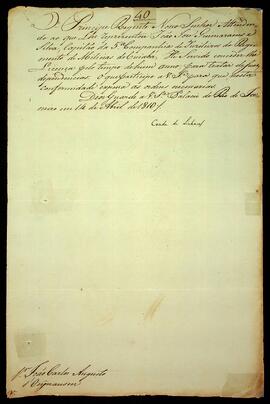 40
O Principe Regente Nosso Senhor Attenden-
do ao que Lhe representou João José Guimaraens e
Silva, Capitão da 5ª Companhia de do Regi-
mento de Milicias de Cuiabá: He servido conceder-lhe
Licença pelo tempo de hum anno, para tratar de suas
dependencias. O que participo a V. Sª para que nesta
conformidade expessa as ordens necessarias.
Deos Guarde a V. Sª Palacio do Rio de Ja-
neiro em 14 de Abril de 1810
Conde de Linhares
João Carlos Augusto
d'Oeynhausen